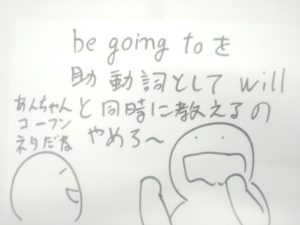 be going to を
助動詞として will
と同時に教えるの
やめろ〜
あんちゃん
コーフン
ネタだな